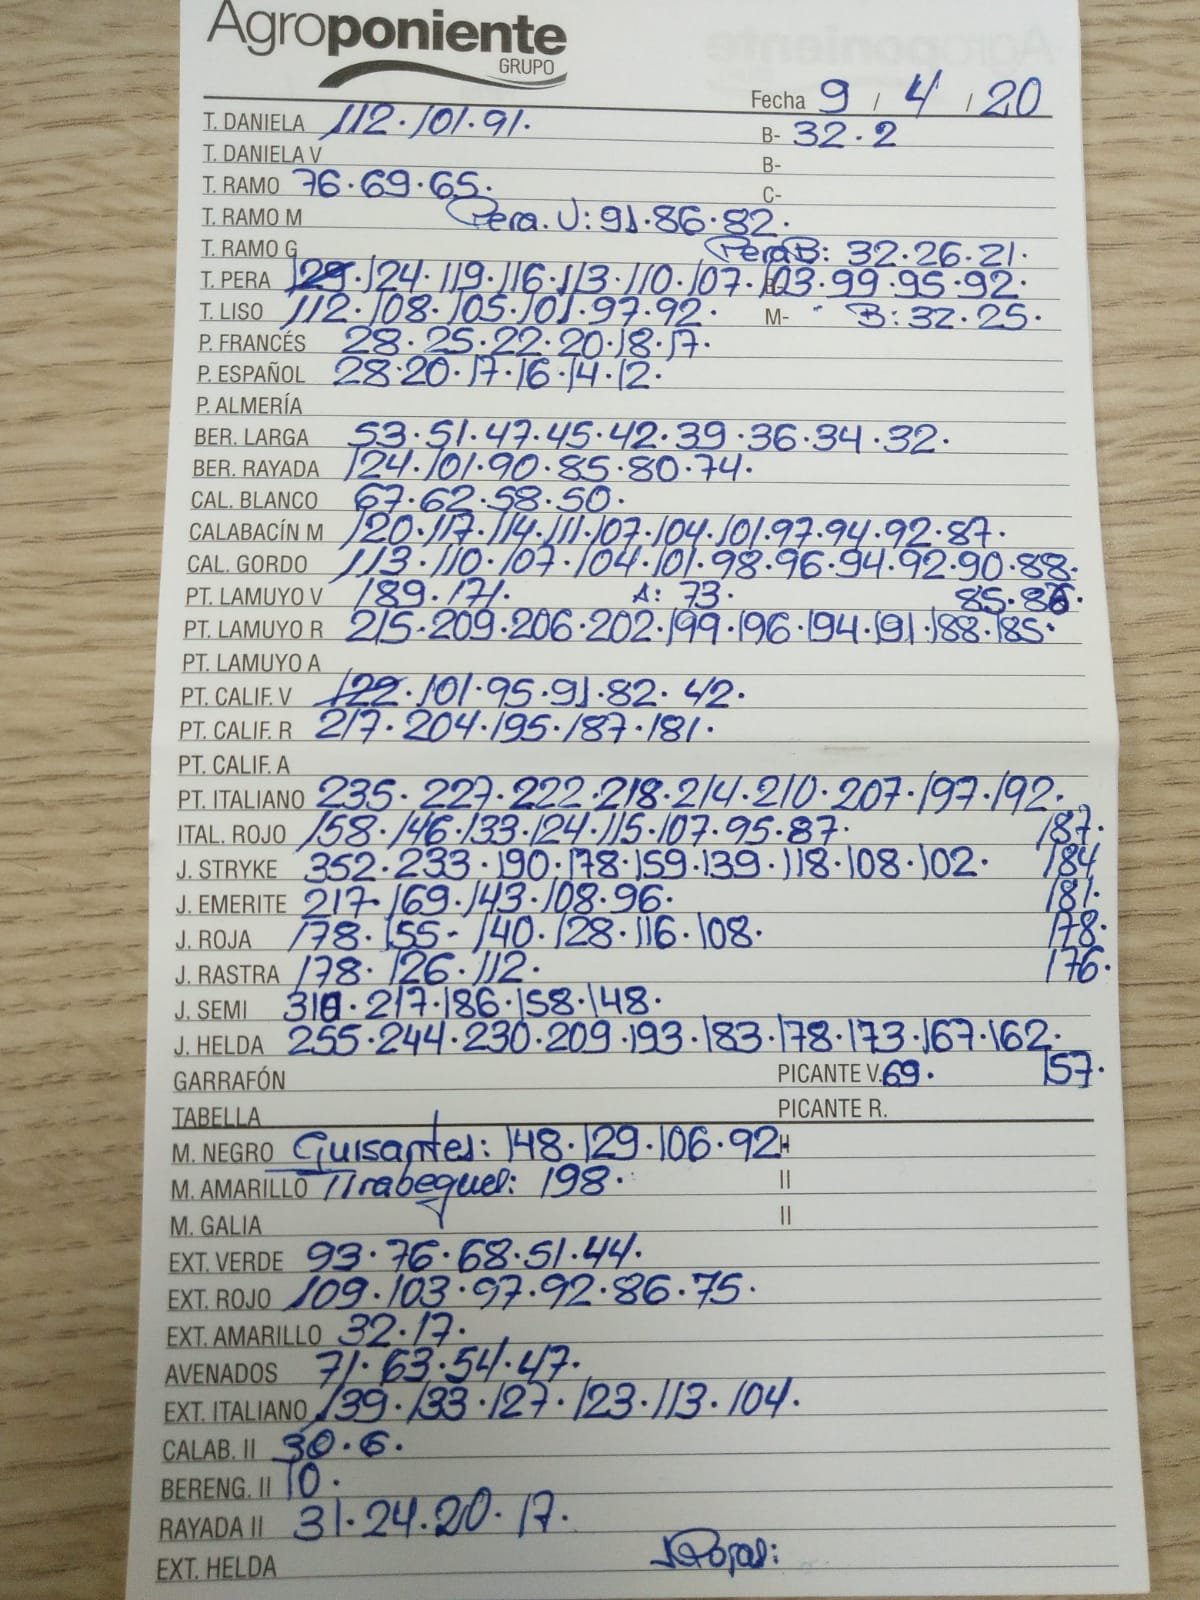 Agroponiente
GRUPO
Fecha 9 / 4 / 20
T. DANIELA 112. 101. 91. B- 32. 2
T. DANIELA V B-
T. RAMO 76. 69. 65. C-
T. RAMO M Pera. V: 91. 86. 82.
T. RAMO G Pera B: 32. 26. 21.
T. PERA 129. 124. 119. 116. 113. 110. 107. 103. 99. 95. 92.
T. LISO 112. 108. 105. 101. 97. 92. M- B: 32. 25.
P. FRANCÉS 28. 25. 22. 20. 18. 17.
P. ESPAÑOL 28. 20. 17. 16. 14. 12.
P. ALMERÍA
BER. LARGA 53. 51. 47. 45. 42. 39. 36. 34. 32.
BER. RAYADA 124. 101. 90. 85. 80. 74.
CAL. BLANCO 67. 62. 58. 50.
CALABACÍN M 120. 117. 114. 111. 107. 104. 101. 97. 94. 92. 87.
CAL. GORDO 113. 110. 107. 104. 101. 98. 96. 94. 92. 90. 88.
PT. LAMUYO V 189. 171. A: 73. 85.
PT. LAMUYO R 215. 209. 206. 202. 199. 196. 194. 191. 188. 185.
PT. LAMUYO A
PT. CALIF. V 122. 101. 95. 91. 82. 42.
PT. CALIF. R 217. 204. 195. 187. 181.
PT. CALIF. A
PT. ITALIANO 235. 227. 222. 218. 214. 210. 207. 197. 192.
ITAL. ROJO 158. 146. 133. 124. 115. 107. 95. 87. 187.
J. STRYKE 352. 233. 190. 178. 159. 139. 118. 108. 102. 184
J. EMERITE 217. 169. 143. 108. 96. 181.
J. ROJA 178. 155- 140. 128. 116. 108. 178.
J. RASTRA 178. 126. 112. 176.
J. SEMI 217. 186. 158. 148.
J. HELDA 255. 244. 230. 209. 193. 183. 178. 173. 167. 162.
GARRAFÓN PICANTE V. 69. 157.
TABELLA PICANTE R.
M. NEGRO Guisantes: 148. 129. 106. 92 II
M. AMARILLO Tirabeques: 198. II
M. GALIA II
EXT. VERDE 93. 76. 68. 51. 44.
EXT. ROJO 109. 103. 97. 92. 86. 75.
EXT. AMARILLO 32. 17.
AVENADOS 71. 63. 54. 47.
EXT. ITALIANO 139. 133. 127. 123. 113. 104.
CALAB. II 30. 6.
BERENG. II 10.
RAYADA II 31. 24. 20. 17.
EXT. HELDA